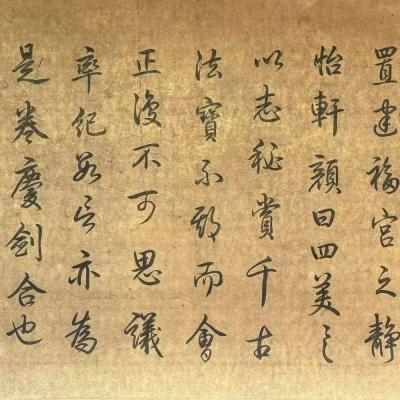 置建福宮之靜
怡軒顏曰四美具
以志秘賞千古
法寶不期而會
正復不可思議
率紀數言亦為
是卷慶劍合也